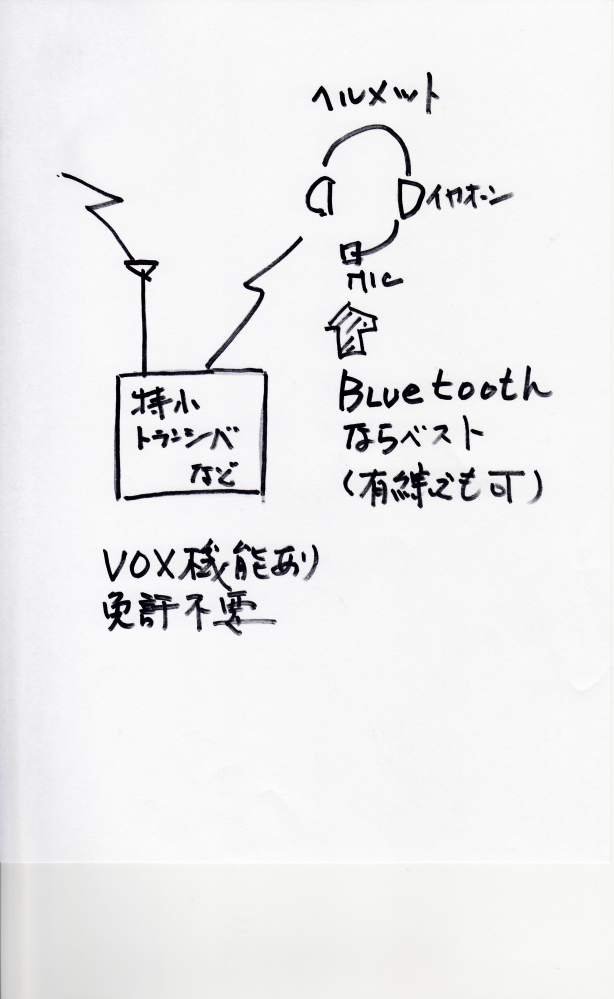 ヘルメット
イヤホーン
MIC
特小
トランシバ
など
Bluetooth
ならベスト
(有線でも可)
VOX機能あり
免許不要